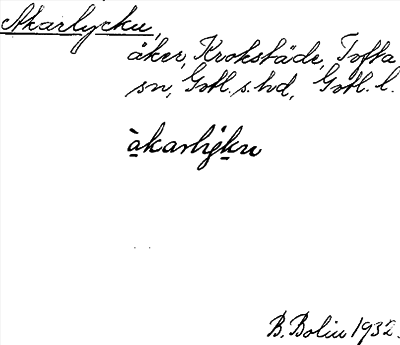 Akarlycku,
åker, Krokstäde, Tofta
sn, Gotl. s. hd, Gotl. l.
àkarlyku
B. Bolin 1932.